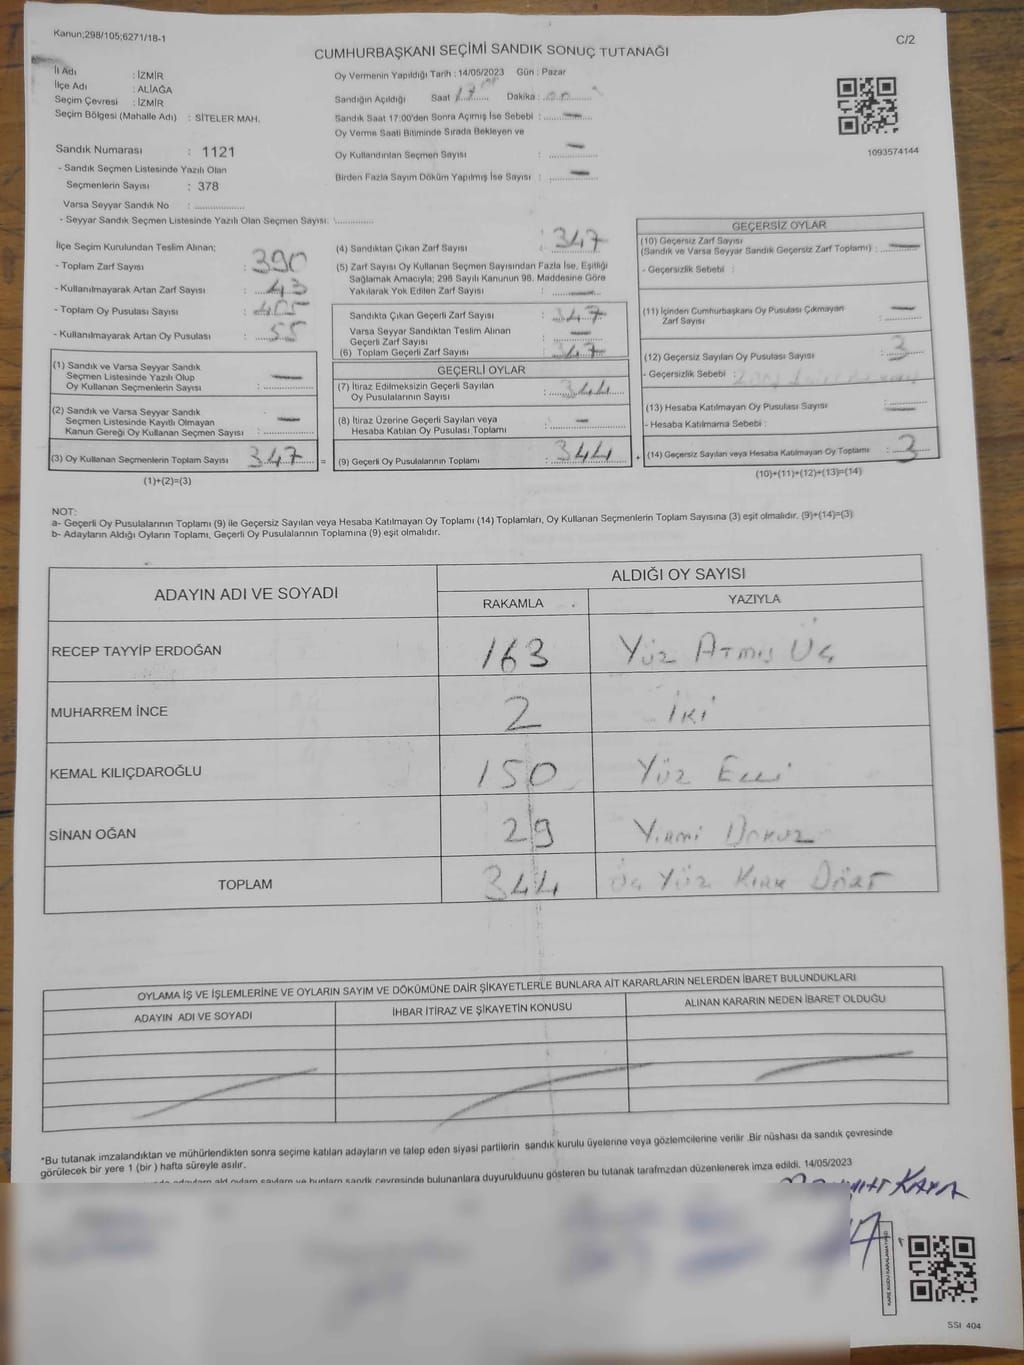 Kanun;298/105;6271/18-1
C/2
CUMHURBAŞKANI SEÇİMİ SANDIK SONUÇ TUTANAĞI
İl Adı : İZMİR
İlçe Adı : ALİAĞA
Seçim Çevresi : İZMİR
Seçim Bölgesi (Mahalle Adı) : SİTELER MAH.
Sandık Numarası : 1121
- Sandık Seçmen Listesinde Yazılı Olan
Seçmenlerin Sayısı : 378
Varsa Seyyar Sandık No : ..............
- Seyyar Sandık Seçmen Listesinde Yazılı Olan Seçmen Sayısı: ..............
Oy Vermenin Yapıldığı Tarih : 14/05/2023 Gün : Pazar
Sandığın Açıldığı Saat 17 Dakika : 00
Sandık Saat 17:00'den Sonra Açımış İse Sebebi : —
Oy Verme Saati Bitiminde Sırada Bekleyen ve
Oy Kullandırılan Seçmen Sayısı : —
Birden Fazla Sayım Döküm Yapılmış İse Sayısı : —
1093574144
İlçe Seçim Kurulundan Teslim Alınan;
- Toplam Zarf Sayısı : 390
- Kullanılmayarak Artan Zarf Sayısı : 43
- Toplam Oy Pusulası Sayısı :
- Kullanılmayarak Artan Oy Pusulası : 55
(1) Sandık ve Varsa Seyyar Sandık
Seçmen Listesinde Yazılı Olup
Oy Kullanan Seçmenlerin Sayısı : —
(2) Sandık ve Varsa Seyyar Sandık
Seçmen Listesinde Kayıtlı Olmayan
Kanun Gereği Oy Kullanan Seçmen Sayısı : —
(3) Oy Kullanan Seçmenlerin Toplam Sayısı : 347 =
(1)+(2)=(3)
(4) Sandıktan Çıkan Zarf Sayısı : 347
(5) Zarf Sayısı Oy Kullanan Seçmen Sayısından Fazla İse, Eşitliği
Sağlamak Amacıyla; 298 Sayılı Kanunun 98. Maddesine Göre
Yakılarak Yok Edilen Zarf Sayısı : —
Sandıkta Çıkan Geçerli Zarf Sayısı : 347
Varsa Seyyar Sandıktan Teslim Alınan
Geçerli Zarf Sayısı : —
(6) Toplam Geçerli Zarf Sayısı : 347
GEÇERLİ OYLAR
(7) İtiraz Edilmeksizin Geçerli Sayılan
Oy Pusulasının Sayısı : 344
(8) İtiraz Üzerine Geçerli Sayılan veya
Hesaba Katılan Oy Pusulası Toplamı : —
(9) Geçerli Oy Pusulalarının Toplamı : 344 +
GEÇERSİZ OYLAR
(10) Geçersiz Zarf Sayısı
(Sandık ve Varsa Seyyar Sandık Geçersiz Zarf Toplamı) : —
- Geçersizlik Sebebi :
(11) İçinden Cumhurbaşkanı Oy Pusulası Çıkmayan
Zarf Sayısı : —
(12) Geçersiz Sayılan Oy Pusulası Sayısı : 3
- Geçersizlik Sebebi :
(13) Hesaba Katılmayan Oy Pusulası Sayısı : —
- Hesaba Katılmama Sebebi :
(14) Geçersiz Sayılan veya Hesaba Katılmayan Oy Toplamı : 3
(10)+(11)+(12)+(13)=(14)
NOT:
a- Geçerli Oy Pusulalarının Toplamı (9) ile Geçersiz Sayılan veya Hesaba Katılmayan Oy Toplamı (14) Toplamları, Oy Kullanan Seçmenlerin Toplam Sayısına (3) eşit olmalıdır. (9)+(14)=(3)
b- Adayların Aldığı Oyların Toplamı, Geçerli Oy Pusulalarının Toplamına (9) eşit olmalıdır.
ADAYIN ADI VE SOYADI
ALDIĞI OY SAYISI
RAKAMLA
YAZIYLA
RECEP TAYYİP ERDOĞAN 163 Yüz Atmış Üç
MUHARREM İNCE 2 İki
KEMAL KILIÇDAROĞLU 150 Yüz Elli
SİNAN OĞAN 29 Yirmi Dokuz
TOPLAM 344 Üç Yüz Kırk Dört
OYLAMA İŞ VE İŞLEMLERİNE VE OYLARIN SAYIM VE DÖKÜMÜNE DAİR ŞİKAYETLERLE BUNLARA AİT KARARLARIN NELERDEN İBARET BULUNDUKLARI
ADAYIN ADI VE SOYADI
İHBAR İTİRAZ VE ŞİKAYETİN KONUSU
ALINAN KARARIN NEDEN İBARET OLDUĞU
*Bu tutanak imzalandıktan ve mühürlendikten sonra seçime katılan adayların ve talep eden siyasi partilerin sandık kurulu üyelerine veya gözlemcilerine verilir .Bir nüshası da sandık çevresinde
görülecek bir yere 1 (bir ) hafta süreyle asılır.
sandık çevresinde bulunanlara duyurulduunu gösteren bu tutanak tarafımızdan düzenlenerek imza edildi. 14/05/2023
KAYA
SSI 404